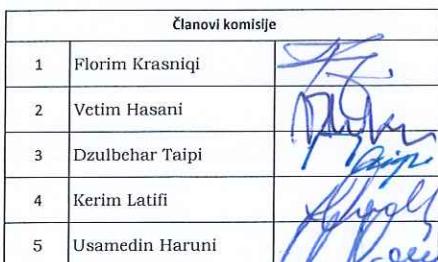 Članovi komisije
1 Florim Krasniqi
2 Vetim Hasani
3 Dzulbehar Taipi
4 Kerim Latifi
5 Usamedin Haruni